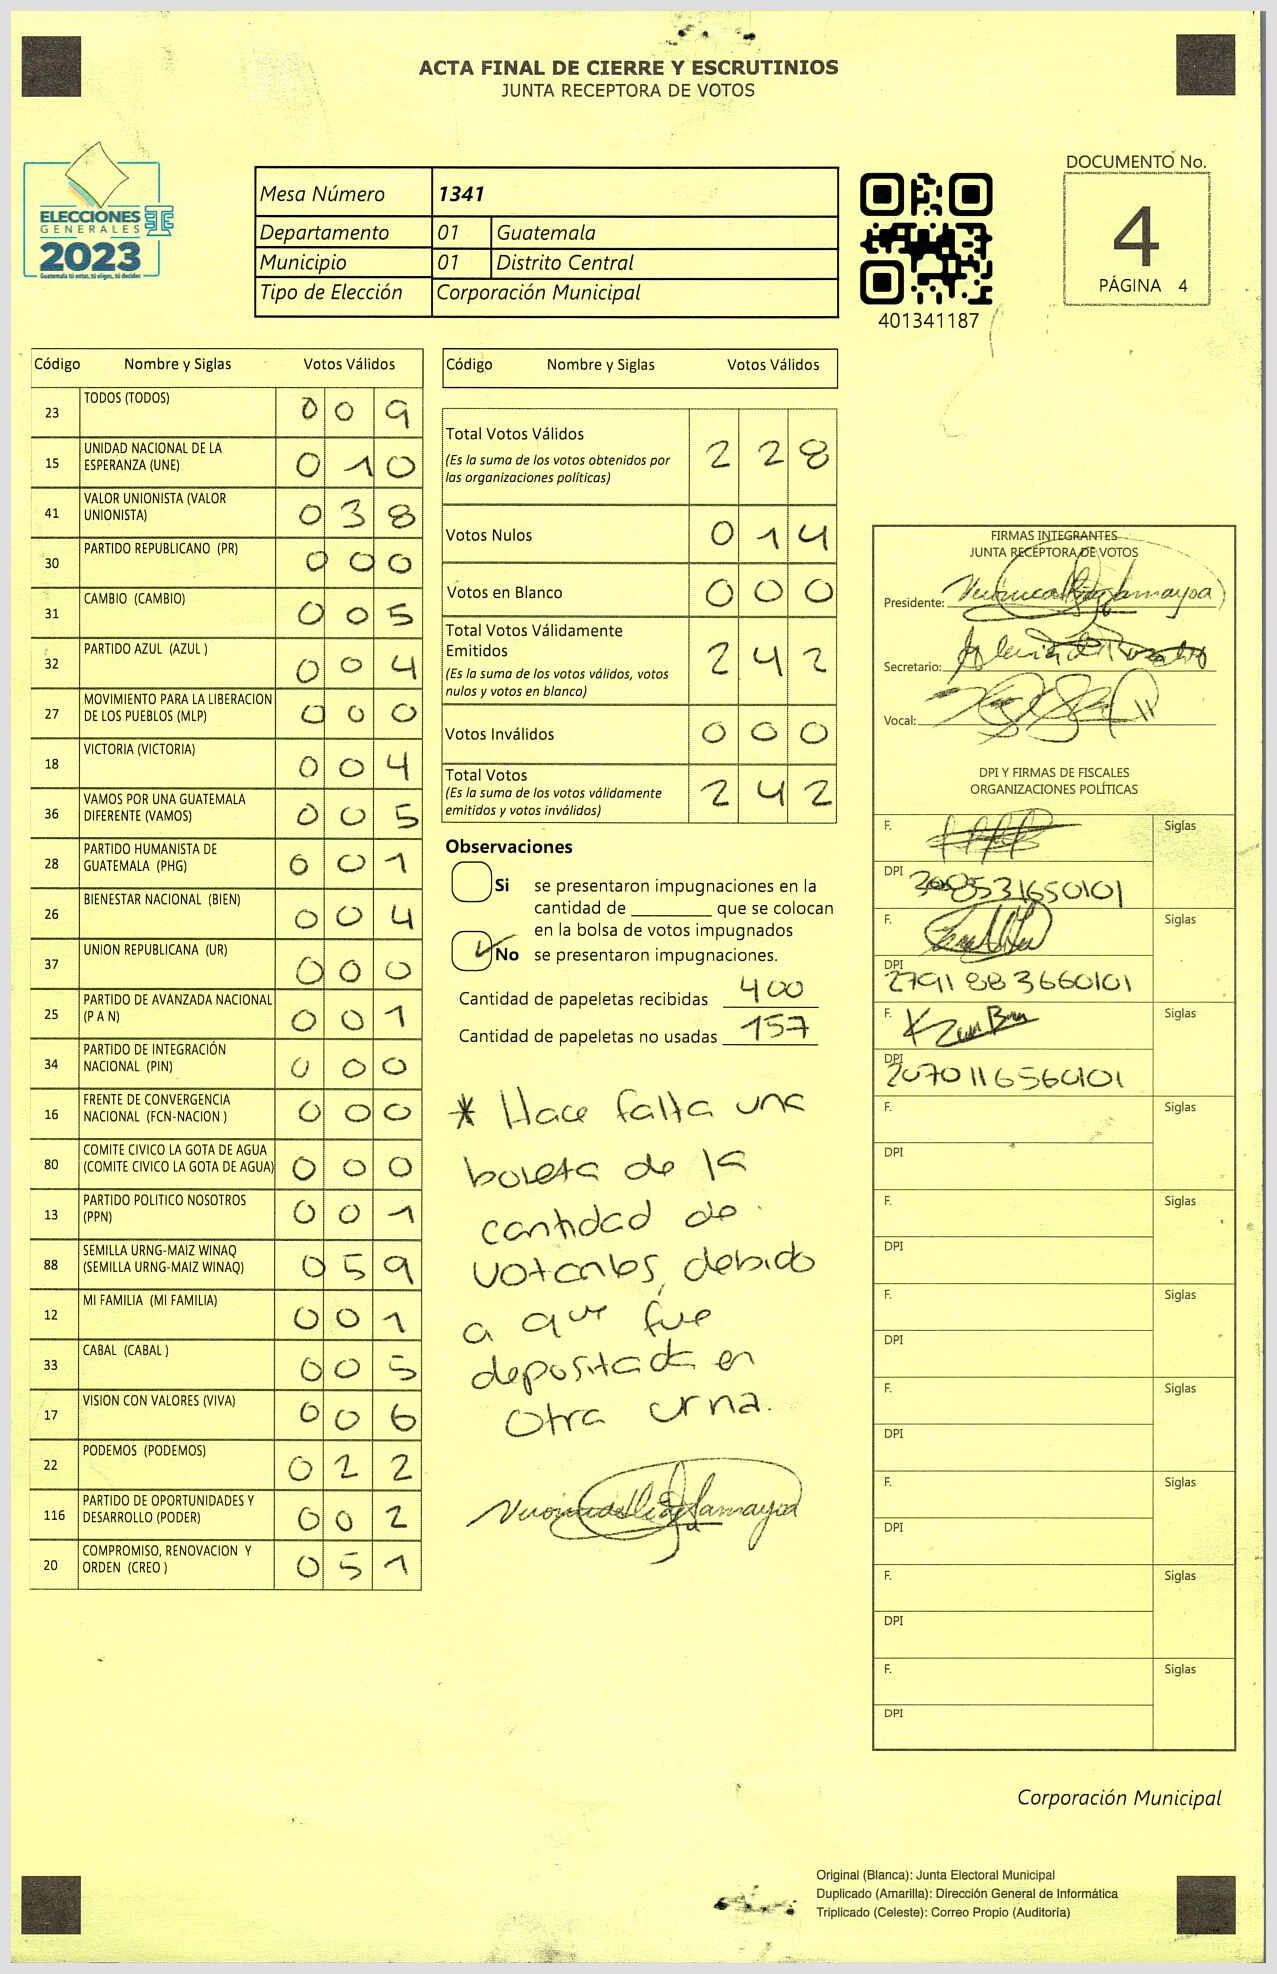 ACTA FINAL DE CIERRE Y ESCRUTINIOS
JUNTA RECEPTORA DE VOTOS
ELECCIONES
GENERALES
2023
Guatemala tú votas, tú eliges, tú decides
Mesa Número 1341
Departamento 01 Guatemala
Municipio 01 Distrito Central
Tipo de Elección Corporación Municipal
401341187
DOCUMENTO No.
4
PÁGINA 4
Código Nombre y Siglas Votos Válidos
23 TODOS (TODOS) 0 0 9
15 UNIDAD NACIONAL DE LA
ESPERANZA (UNE) 0 1 0
41 VALOR UNIONISTA (VALOR
UNIONISTA) 0 3 8
30 PARTIDO REPUBLICANO (PR) 0 0 0
31 CAMBIO (CAMBIO) 0 0 5
32 PARTIDO AZUL (AZUL ) 0 0 4
27 MOVIMIENTO PARA LA LIBERACION
DE LOS PUEBLOS (MLP) 0 0 0
18 VICTORIA (VICTORIA) 0 0 4
36 VAMOS POR UNA GUATEMALA
DIFERENTE (VAMOS) 0 0 5
28 PARTIDO HUMANISTA DE
GUATEMALA (PHG) 0 0 1
26 BIENESTAR NACIONAL (BIEN) 0 0 4
37 UNION REPUBLICANA (UR) 0 0 0
25 PARTIDO DE AVANZADA NACIONAL
(P A N) 0 0 1
34 PARTIDO DE INTEGRACIÓN
NACIONAL (PIN) 0 0 0
16 FRENTE DE CONVERGENCIA
NACIONAL (FCN-NACION ) 0 0 0
80 COMITE CIVICO LA GOTA DE AGUA
(COMITE CIVICO LA GOTA DE AGUA) 0 0 0
13 PARTIDO POLITICO NOSOTROS
(PPN) 0 0 1
88 SEMILLA URNG-MAIZ WINAQ
(SEMILLA URNG-MAIZ WINAQ) 0 5 9
12 MI FAMILIA (MI FAMILIA) 0 0 1
33 CABAL (CABAL ) 0 0 5
17 VISION CON VALORES (VIVA) 0 0 6
22 PODEMOS (PODEMOS) 0 2 2
116 PARTIDO DE OPORTUNIDADES Y
DESARROLLO (PODER) 0 0 2
20 COMPROMISO, RENOVACION Y
ORDEN (CREO ) 0 5 1
Código Nombre y Siglas Votos Válidos
Total Votos Válidos 2 2 8
(Es la suma de los votos obtenidos por
las organizaciones políticas)
Votos Nulos 0 1 4
Votos en Blanco 0 0 0
Total Votos Válidamente
Emitidos 2 4 2
(Es la suma de los votos válidos, votos
nulos y votos en blanco)
Votos Inválidos 0 0 0
Total Votos 2 4 2
(Es la suma de los votos válidamente
emitidos y votos inválidos)
Observaciones
Si se presentaron impugnaciones en la
cantidad de ________ que se colocan
en la bolsa de votos impugnados
No se presentaron impugnaciones.
Cantidad de papeletas recibidas 400
Cantidad de papeletas no usadas 157
* Hace falta una
boleta de la
cantidad de
votantes, debido
a que fue
depositada en
otra urna.
FIRMAS INTEGRANTES
JUNTA RECEPTORA DE VOTOS
Presidente:
Secretario:
Vocal:
DPI Y FIRMAS DE FISCALES
ORGANIZACIONES POLÍTICAS
F. Siglas
DPI
F. Siglas
DPI 2791883660101
F. Siglas
DPI 2070116560101
F. Siglas
DPI
F. Siglas
DPI
F. Siglas
DPI
F. Siglas
DPI
F. Siglas
DPI
F. Siglas
DPI
F. Siglas
DPI
Corporación Municipal
Original (Blanca): Junta Electoral Municipal
Duplicado (Amarilla): Dirección General de Informática
Triplicado (Celeste): Correo Propio (Auditoría)